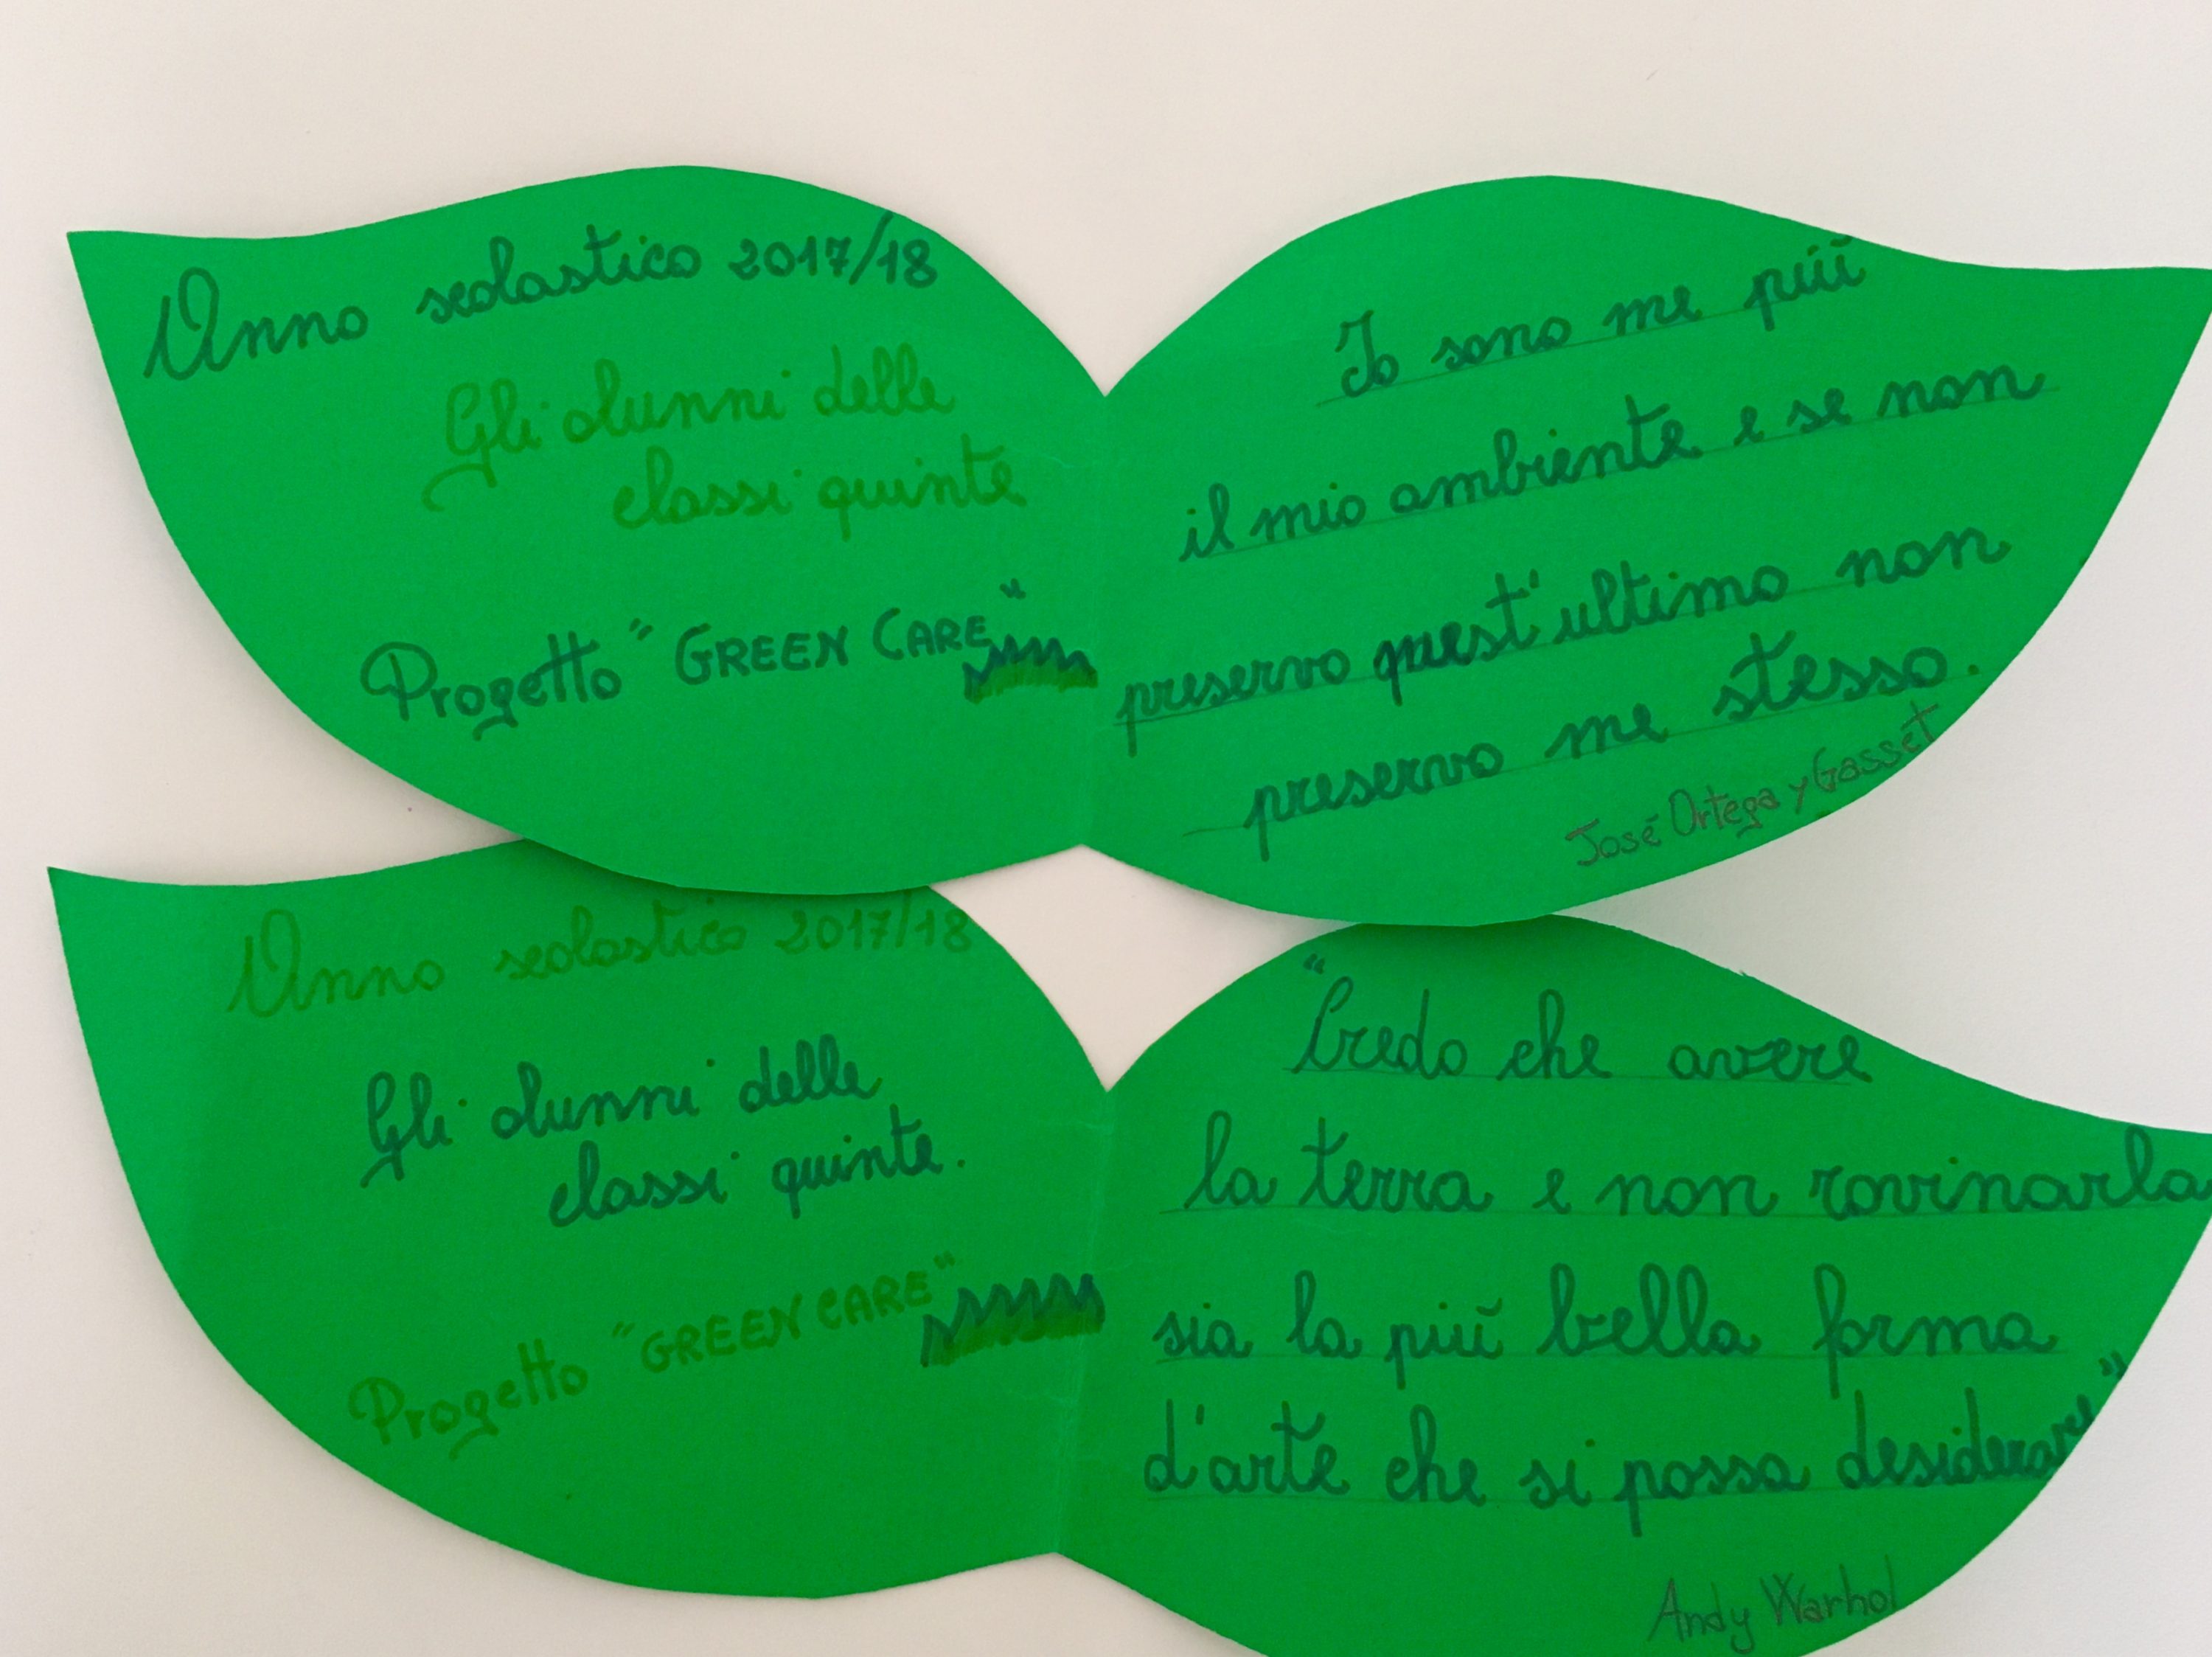 Anno scolastico 2017/18
Gli alunni delle
classi quinte
Progetto "GREEN CARE"
Io sono me più
il mio ambiente e se non
preservo quest'ultimo non
preservo me stesso.
José Ortega y Gasset
Anno scolastico 2017/18
Gli alunni delle
classi quinte.
Progetto "GREEN CARE"
"Credo che avere
la terra e non rovinarla
sia la più bella forma
d'arte che si possa desiderare"
Andy Warhol